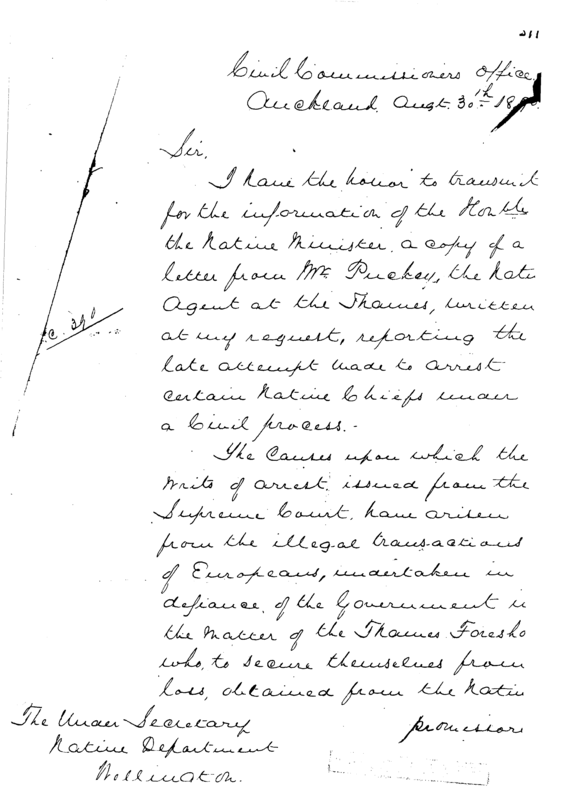 211
Civil Commissioners Office,
Auckland. Augt. 30th 18
Sir,
I have the honor to transmit
for the information of the Honble
the Native Minister, a copy of a
letter from Mr Puckey, the Nati
Agent at the Thames, written
at my request, reporting the
late attempt made to arrest
certain Native Chiefs under
a Civil process.-
C. 390
The Causes upon which the
Writs of arrest, issued from the
Supreme Court, have arisen
from the illegal transactions
of Europeans, undertaken in
defiance, of the Government i
the matter of the Thames Foresho
who, to secure themselves from
loss, obtained from the Nativ
promissor
The Under Secretary
Native Department
Wellington.